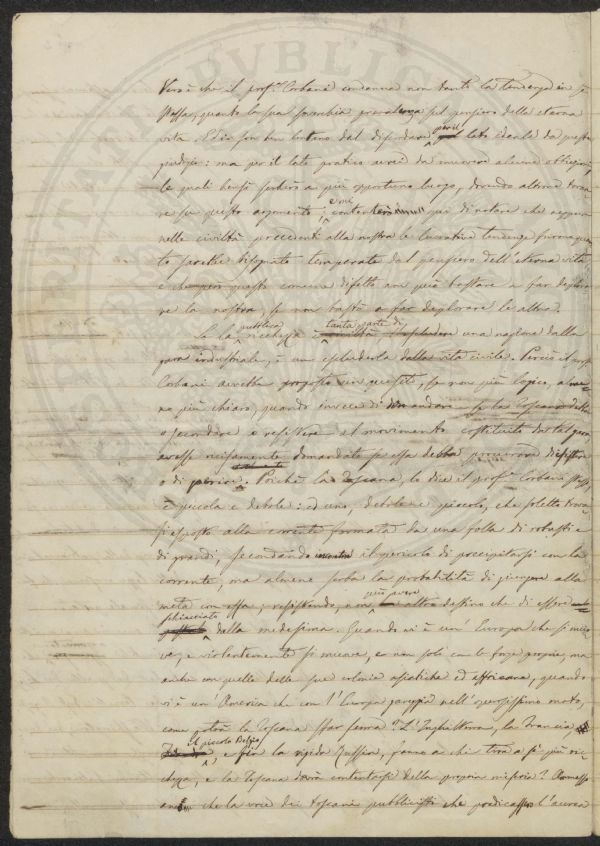 Vero è che il prof.r Corbani condanna non tanto la tendenza in se
stessa, quanto la sua soverchia prevalenza sul pensiero della eterna
vita. Ed io son ben lontano dal difendere per il lato ideale da questo
pregio: ma per il lato pratico avrei da muovere alcune obbiezioni,
le quali bensì serberò a più opportuno luogo, dovendo altrove torna
re su questo argomento; e mi contenterò qui di notare che appunto
nelle civiltà precedenti alla nostra le lucrative tendenze furono
to poche temperate dal pensiero dell'eterna vita
e che però questo comune difetto non può bastare a far deplora
re la nostra, se non basta a far deplorare le altre.
Se la pubblica ricchezza è tanta parte di civiltà escludere una nazione dalla
gara industriale, è un escluderla dalla vita civile. Perciò il prof.
Corbani avrebbe proposto un quesito, se non più logico, alme
no più chiaro, quando invece di domandare se la Toscana debba
o secondare o resistere al movimento costituito da tal gara
avesse recisamente domandato se essa debba procurare di esistere
o di perire. Poichè la Toscana, lo dice il prof.r Corbani stesso,
è piccola e debole: ed uno, debole e piccolo, che soletto trova
si esposto alla corrente formata da una folla di robusti e
di grandi, secondando il pericolo di precipitarsi con la
corrente, ma almeno serba la probabilità di giungere alla
meta con essa; resistendo, non può avere altro destino che di essere
schiacciato dalla medesima. Quando vi è un'Europa che si muo
ve, e violentemente si muove, e non soli con le forze proprie, ma
anche con quelle delle sue colonie asiatiche ed affricane, quando
vi è un'America che con l'Europa gareggia nell'operosissimo moto,
come potrà la Toscana star ferma? L'Inghilterra, la Francia,
il piccolo Belgio, e fin la rigida Russia, fanno a chi tira a se più ric
chezza, e la Toscana dovrà contentarsi della propria miseria? Ammesso
che la voce dei toscani pubblicisti che predicasser l'aurea